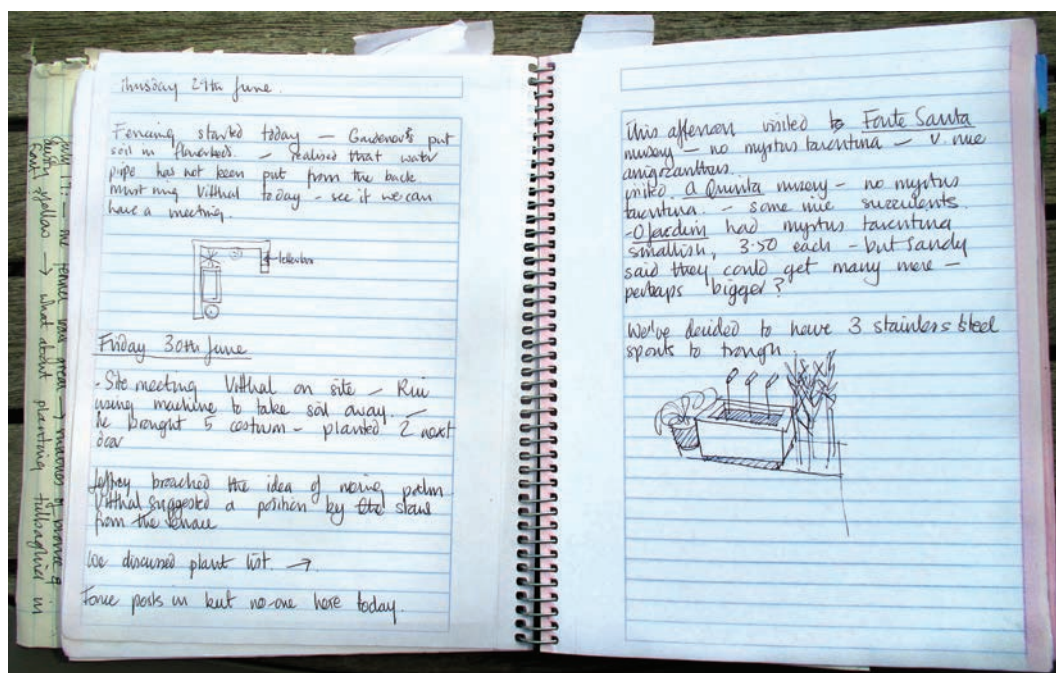 Thursday 29th June.
Fencing started today – Gardeners put
soil in flowerbeds. – realised that water
pipe has not been put from the back
must ring Vitthal today – see if we can
have a meeting.
letterbox
Friday 30th June
- Site meeting Vitthal on site – Rui
using machine to take soil away. –
he brought 5 cestrum – planted 2 next
door
Jeffrey broached the idea of moving palm
Vitthal suggested a position by the stairs
from the terrace
We discussed plant list. →
Fence posts in but no-one here today.
→ what about planting tulbaghia in
This afternoon visited to Fonte Santa
nursery – no myrtus tarentina – v. nice
anigozanthus.
visited a Quinta nursery – no myrtus
tarentina. – some nice succulents.
- O Jardim had myrtus tarentina
smallish, 3.50 each – but Sandy
said they could get many more –
perhaps bigger?
We've decided to have 3 stainless steel
spouts to trough